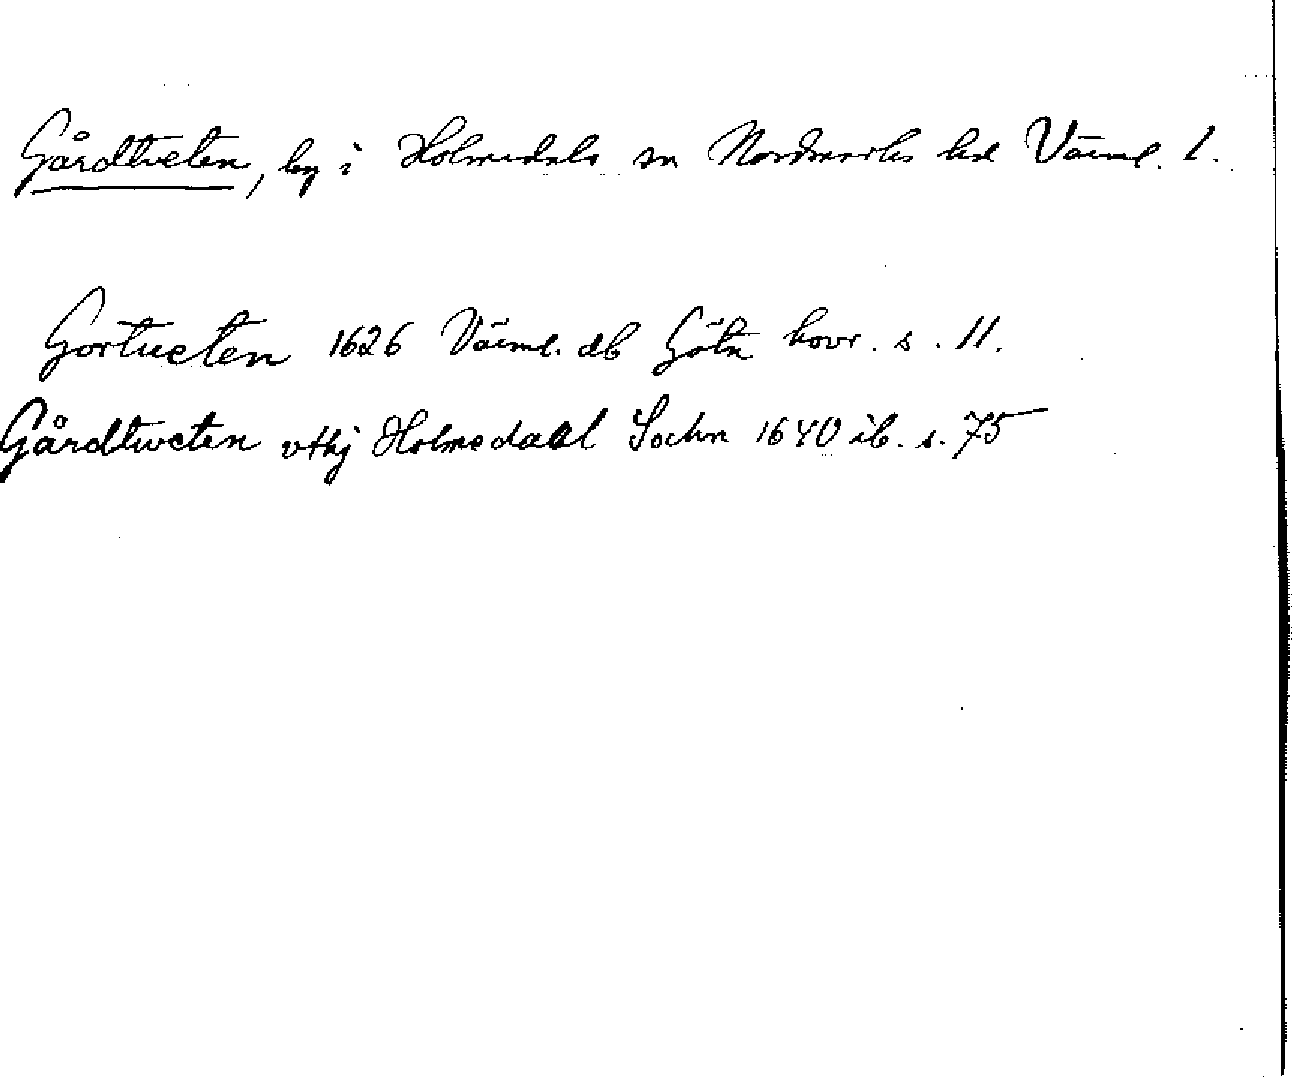 Gårdtveten, by i Holmedals sn Nordmarks hd Värml. l.
Gortueten 1626 Värml. db Göta hovr. s. 11.
Gårdtweten vthj Holmedaal Sochn 1640 ib. s. 75